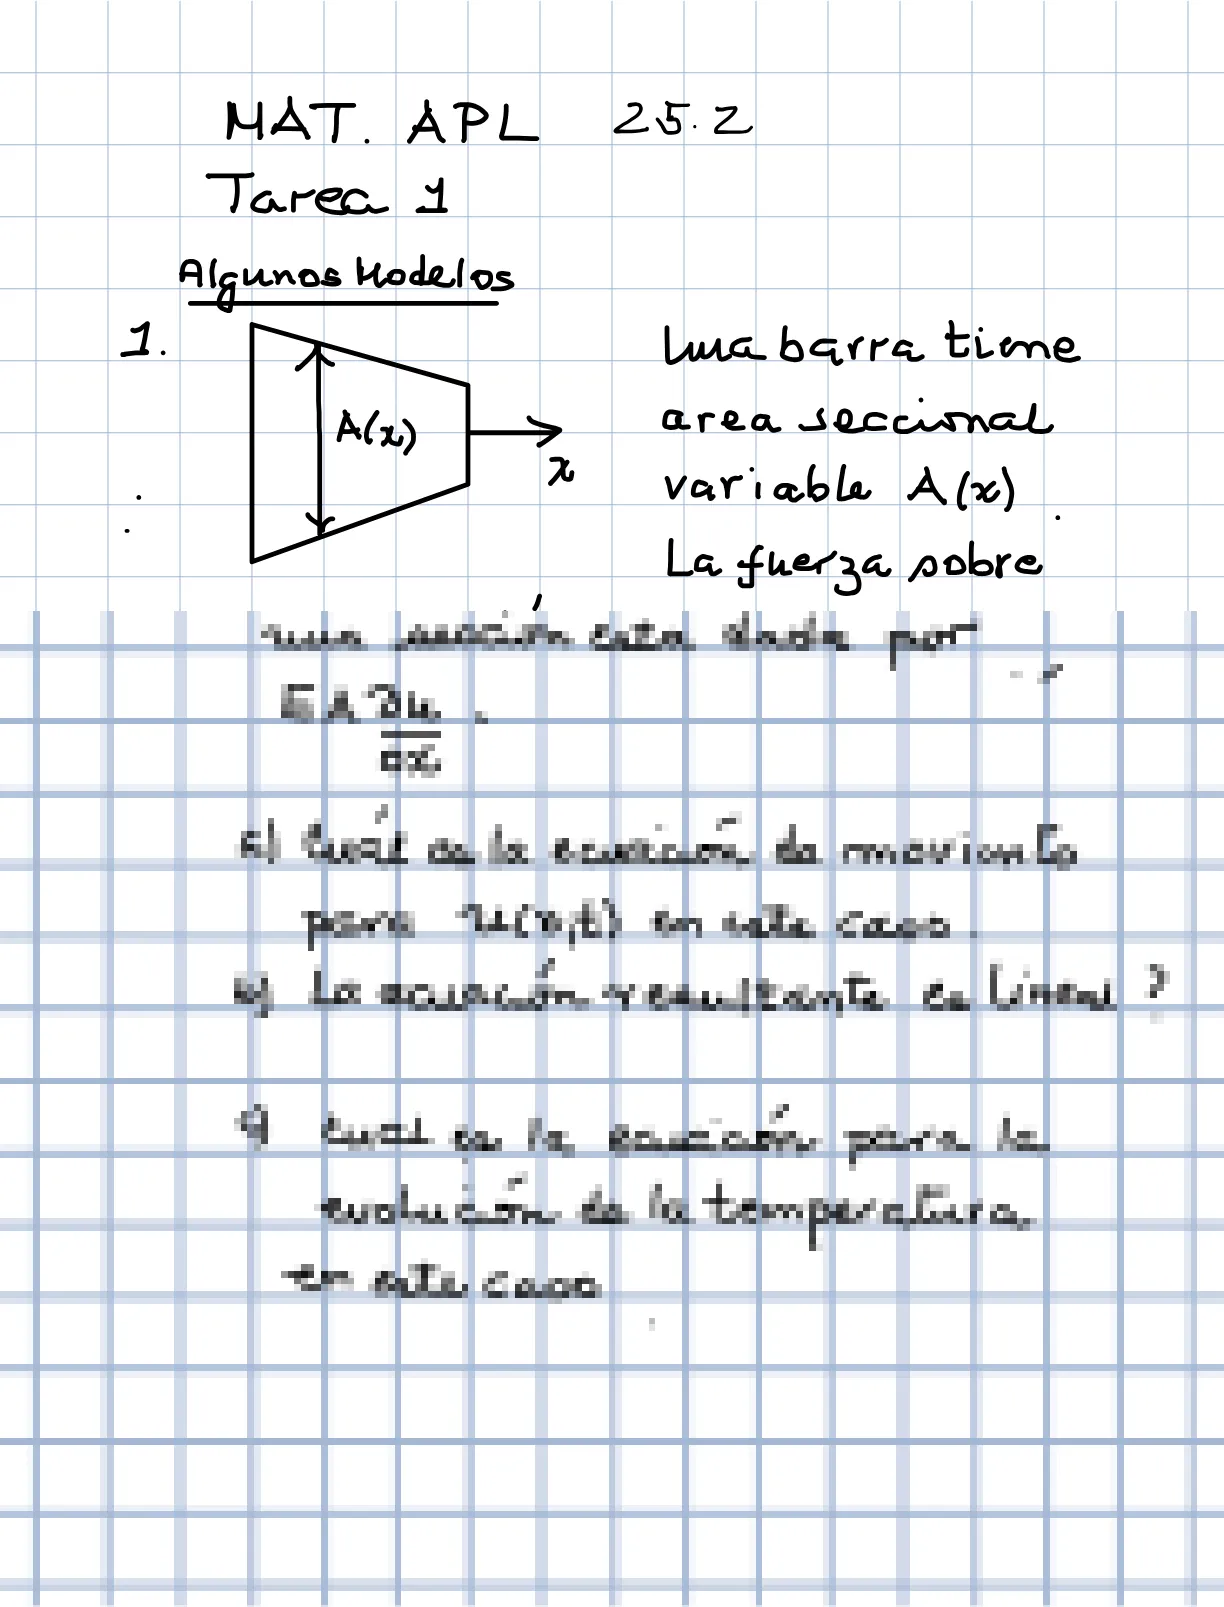 MAT. APL 25.2
Tarea 1
Algunos Modelos
1.
A(x)
x
Una barra tiene
area seccional
variable A(x)
La fuerza sobre
una sección esta dada por
EA ∂u/∂x .
a) Cuál es la ecuación de movimiento
para u(x,t) en este caso.
b) La ecuación resultante es lineal ?
c) Cual es la ecuación para la
evolución de la temperatura
en este caso